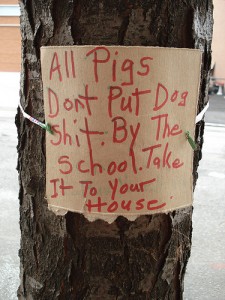 All Pigs
Dont Put Dog
Shit. By The
School. Take
It To Your
House.